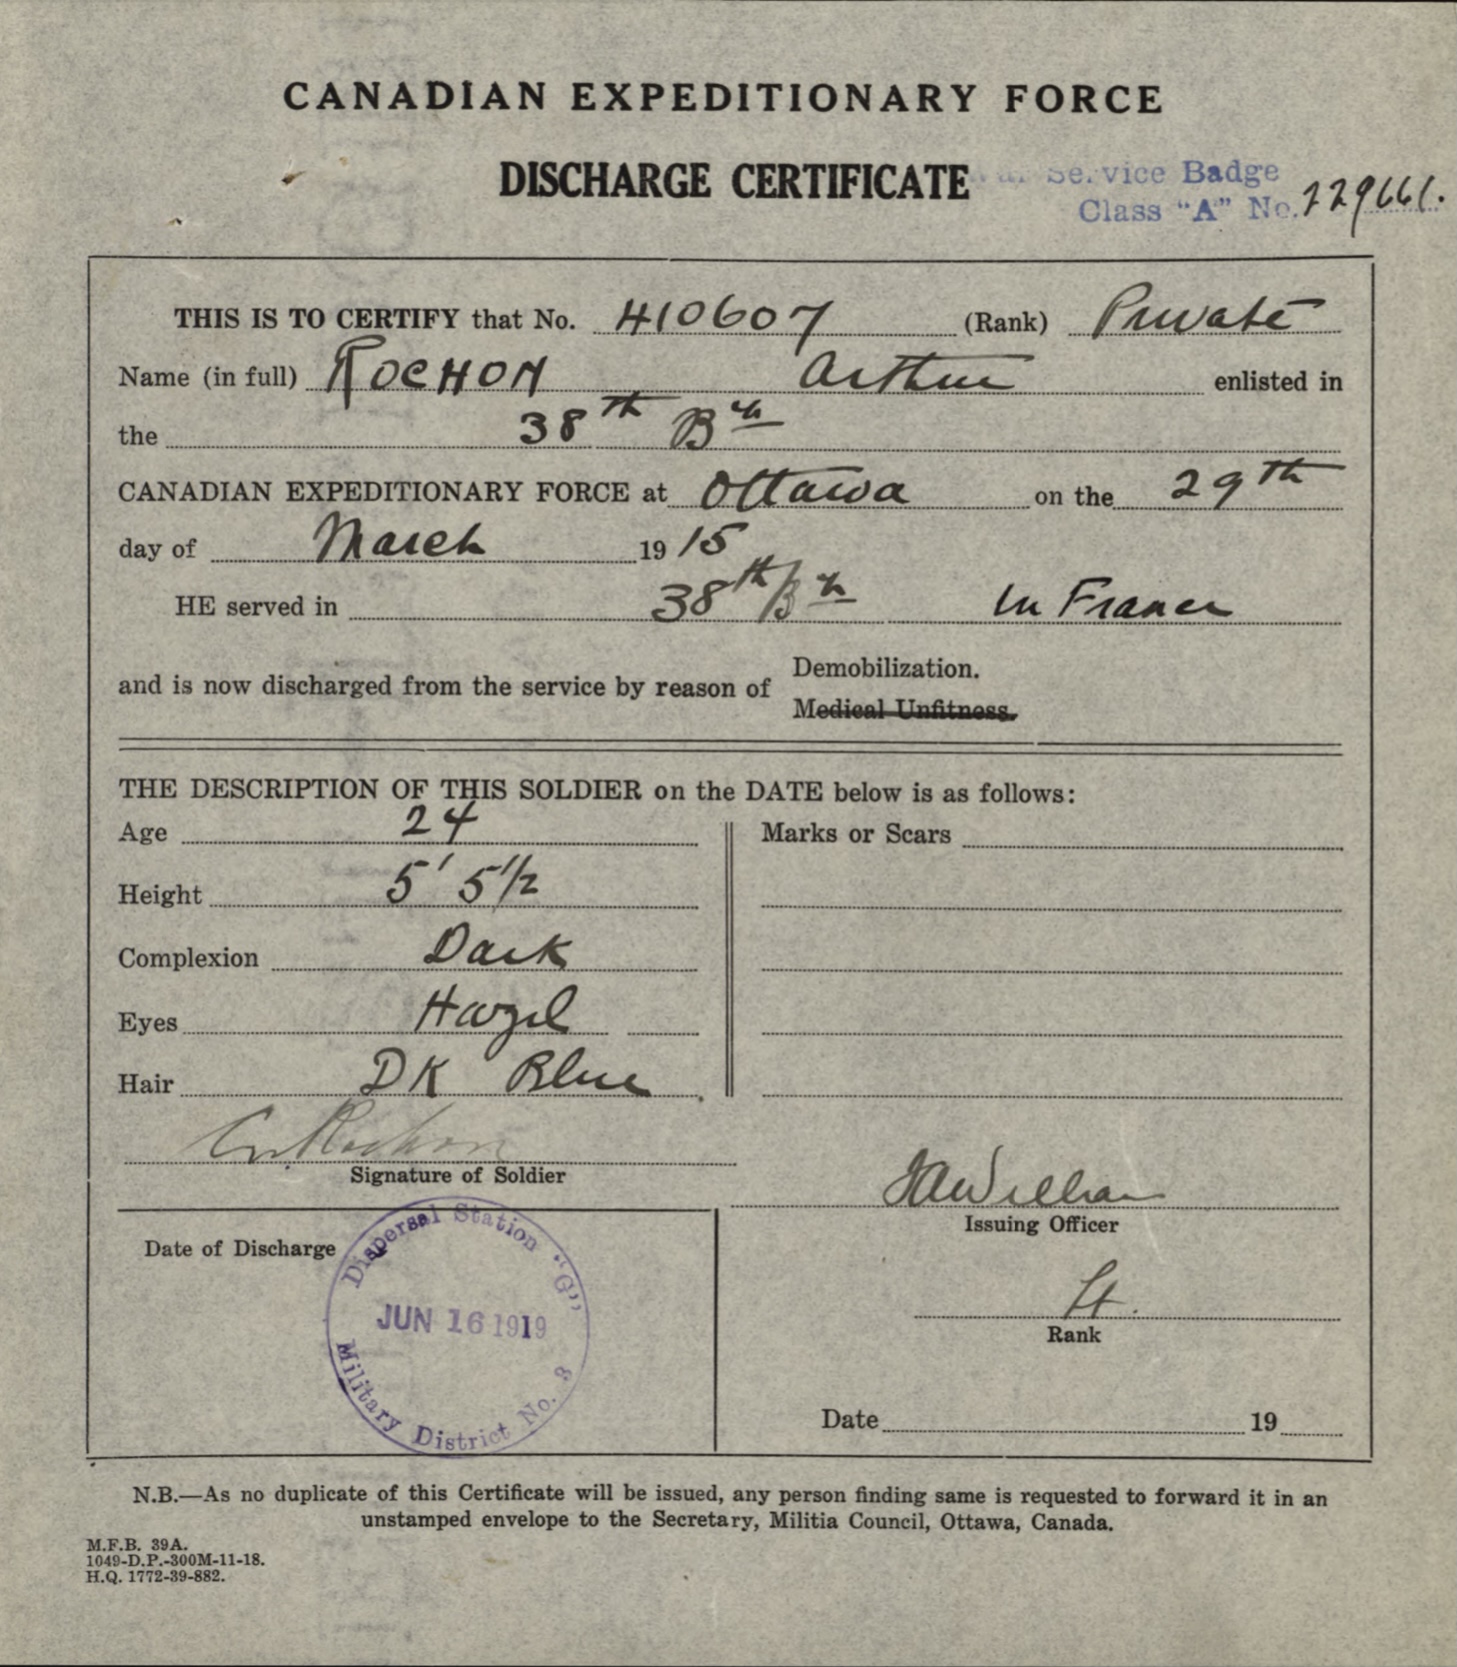 CANADIAN EXPEDITIONARY FORCE
DISCHARGE CERTIFICATE
Service Badge
Class "A" No. 229661.
THIS IS TO CERTIFY that No. 410607 (Rank) Private
Name (in full) ROCHON Arthur enlisted in
the 38th Bn
CANADIAN EXPEDITIONARY FORCE at Ottawa on the 29th
day of March 1915
HE served in 38th Bn in France
and is now discharged from the service by reason of Demobilization.
Medical Unfitness.
THE DESCRIPTION OF THIS SOLDIER on the DATE below is as follows:
Age 24
Marks or Scars
Height 5' 5 1/2
Complexion Dark
Eyes Hazel
Hair DK Blue
Rochon
Signature of Soldier
Issuing Officer
Lt.
Rank
Date of Discharge
Dispersal Station "G"
JUN 16 1919
Military District No. 3
Date 19
N.B.—As no duplicate of this Certificate will be issued, any person finding same is requested to forward it in an
unstamped envelope to the Secretary, Militia Council, Ottawa, Canada.
M.F.B. 39A.
1049-D.P.-300M-11-18.
H.Q. 1772-39-882.